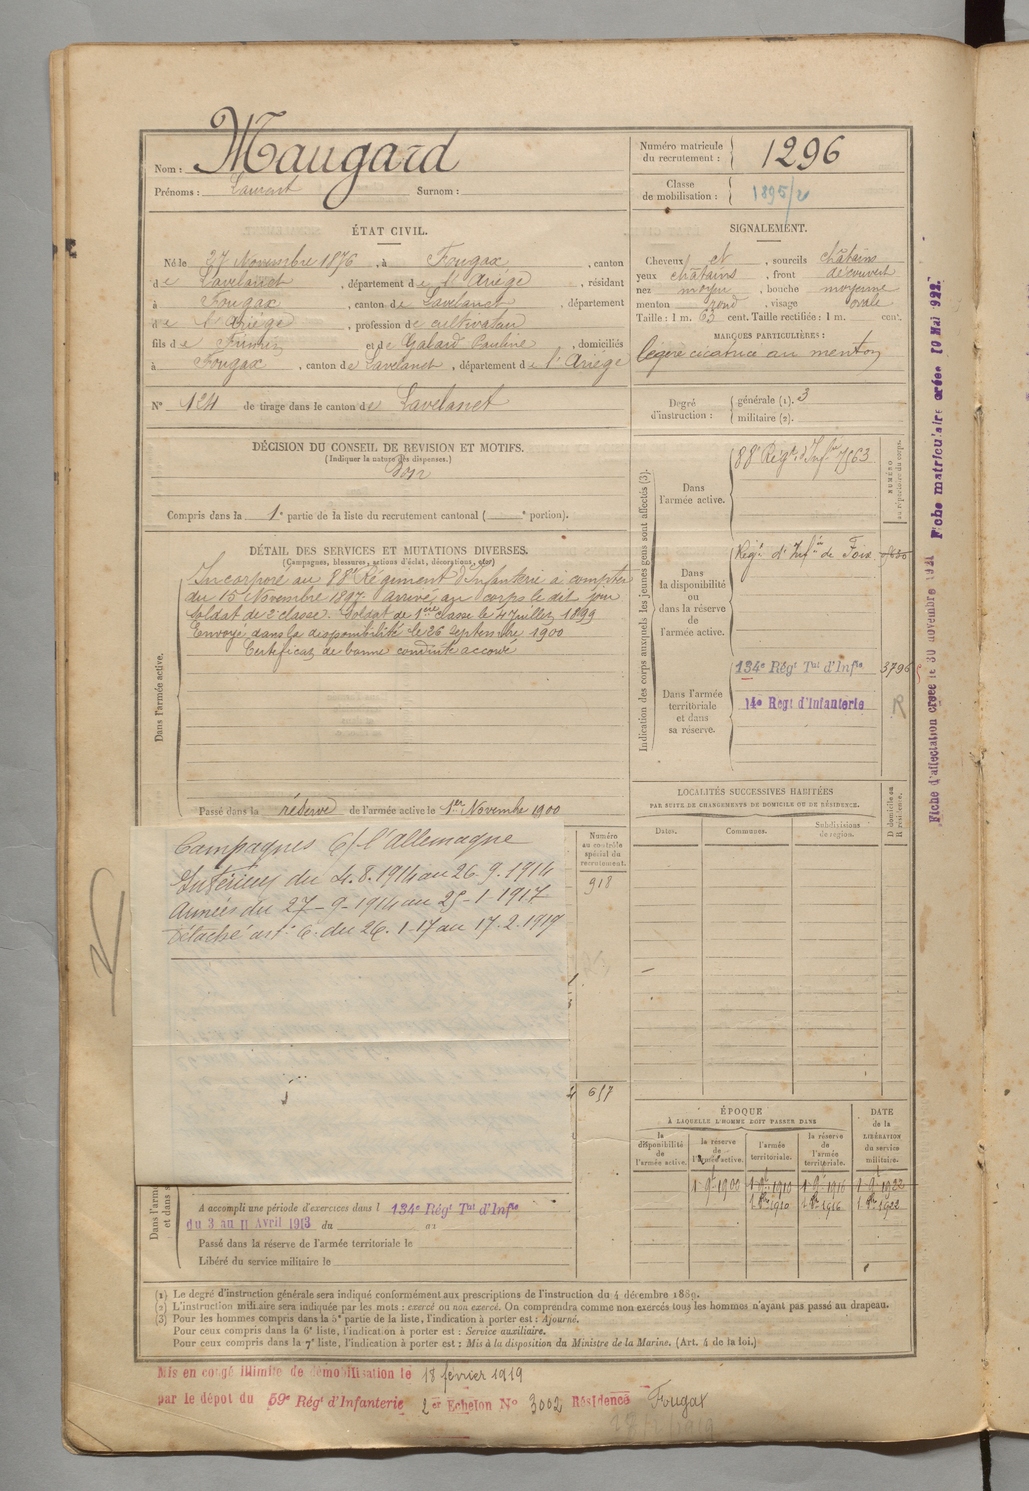 Nom : Maugard
Prénoms : Laurent Surnom :
Numéro matricule du recrutement : 1296
Classe de mobilisation : 1895/2
ÉTAT CIVIL.
Né le 27 Novembre 1876, à Fougax, canton
de Lavelanet, département de l'Ariège, résidant
à Fougax, canton de Lavelanet, département
de l'Ariège, profession de cultivateur
fils de et de Galard Pauline, domiciliés
à Fougax, canton de Lavelanet, département de l'Ariège
N° 124 de tirage dans le canton de Lavelanet
SIGNALEMENT.
Cheveux et, sourcils châtains
yeux châtains, front découvert
nez moyen, bouche moyenne
menton rond, visage ovale
Taille : 1 m. 63 cent. Taille rectifiée : 1 m. cent.
MARQUES PARTICULIÈRES :
légère cicatrice au menton
Degré d'instruction : générale (1). 3
militaire (2).
DÉCISION DU CONSEIL DE REVISION ET MOTIFS.
(Indiquer la nature des dispenses.)
Bon
Compris dans la 1e partie de la liste du recrutement cantonal ( e portion).
DÉTAIL DES SERVICES ET MUTATIONS DIVERSES.
(Campagnes, blessures, actions d'éclat, décorations, etc.)
Dans l'armée active.
Incorporé au 88e Régiment d'Infanterie à compter
du 15 Novembre 1897 Arrivé au corps le dit jour
Soldat de 2e classe. Soldat de 1ère classe le 4 Juillet 1899
Envoyé dans la disponibilité le 26 Septembre 1900
Certificat de bonne conduite accordé
Passé dans la réserve de l'armée active le 1er Novembre 1900
Indication des corps auxquels les jeunes gens sont affectés (3).
NUMÉRO au répertoire du corps.
Dans l'armée active.
88e Régt d'Infie 7563
Dans la disponibilité ou dans la réserve de l'armée active.
Régt d'Infie de Foix
Dans l'armée territoriale et dans sa réserve.
134e Régt Tal d'Infie 3796
14e Régt d'Infanterie R
Fiche d'affectation créée le 30 novembre 1921 Fiche matriculaire créée 19 Mai 1922.
LOCALITÉS SUCCESSIVES HABITÉES
PAR SUITE DE CHANGEMENTS DE DOMICILE OU DE RÉSIDENCE.
Dates. Communes. Subdivisions de région. D domicile ou R résidence.
Numéro au contrôle spécial du recrutement.
918
617
Campagnes C/ l'Allemagne
Intérieur du 4.8.1914 au 26.9.1914
Armées du 27-9-1914 au 25-1-1917
Détaché du 26.1-17 au 17.2.1919
ÉPOQUE
À LAQUELLE L'HOMME DOIT PASSER DANS
la disponibilité de l'armée active. la réserve de l'armée active. l'armée territoriale. la réserve de l'armée territoriale.
DATE de la LIBÉRATION du service militaire.
1 9bre 1900 1 9bre 1910 1 9bre 1916 1 9bre 1922
1 8bre 1910 1 8bre 1916 1 8bre 1922
A accompli une période d'exercices dans l 134e Régt Tal d'Infie
du 3 au 11 Avril 1913 du au
Passé dans la réserve de l'armée territoriale le
Libéré du service militaire le
(1) Le degré d'instruction générale sera indiqué conformément aux prescriptions de l'instruction du 4 décembre 1889.
(2) L'instruction militaire sera indiquée par les mots : exercé ou non exercé. On comprendra comme non exercés tous les hommes n'ayant pas passé au drapeau.
(3) Pour les hommes compris dans la 5e partie de la liste, l'indication à porter est : Ajourné.
Pour ceux compris dans la 6e liste, l'indication à porter est : Service auxiliaire.
Pour ceux compris dans la 7e liste, l'indication à porter est : Mis à la disposition du Ministre de la Marine. (Art. 4 de la loi.)
Mis en congé illimité de démobilisation le 18 février 1919
par le dépôt du 59e Régt d'Infanterie 2er Echelon N° 3002 Résidence Fougax